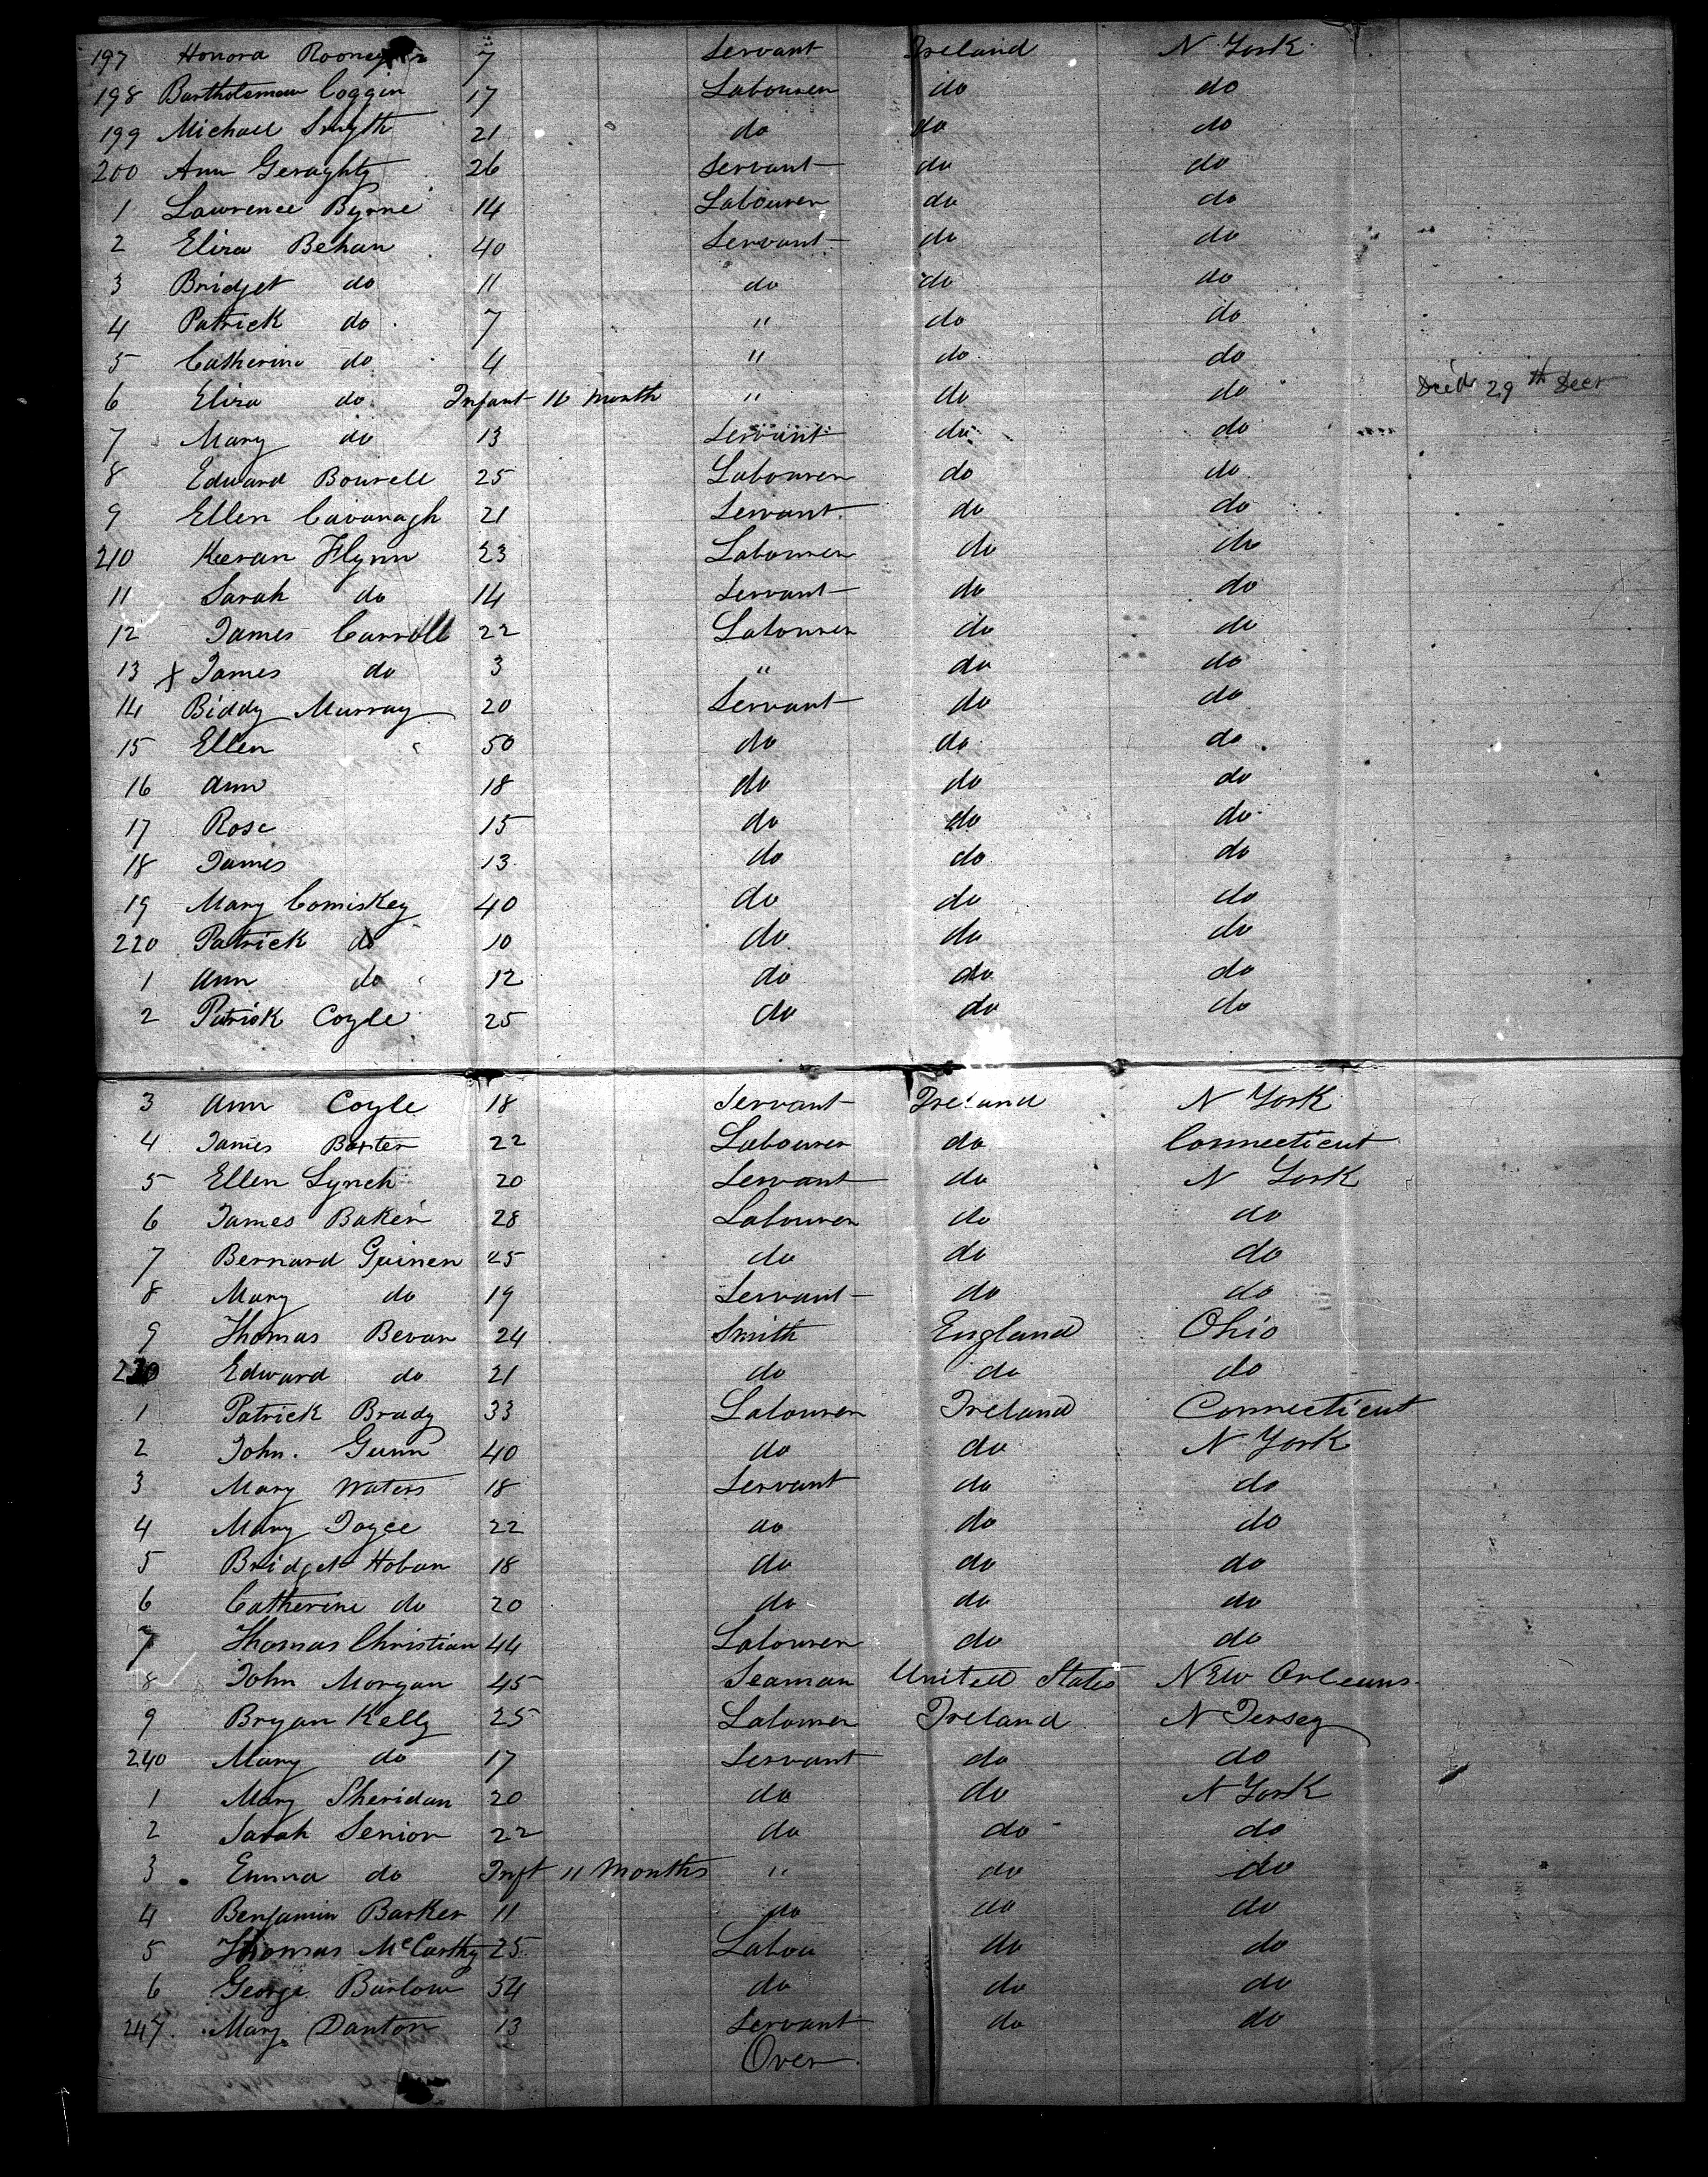 197 Honora Rooney 7 Servant Ireland N York
198 Bartholomew Coggin 17 Labourer do do
199 Michael Smyth 21 do do do
200 Ann Geraghty 26 Servant do do
1 Lawrence Byrne 14 Labourer do do
2 Eliza Behan 40 Servant do do
3 Bridget do 11 do do do
4 Patrick do 7 " do do
5 Catherine do 4 " do do
6 Eliza do Infant 10 month " do do Died 29th Decr
7 Mary do 13 Servant do do
8 Edward Bourell 25 Labourer do do
9 Ellen Cavanagh 21 Servant do do
210 Keran Flynn 23 Labourer do do
11 Sarah do 14 Servant do do
12 James Carroll 22 Labourer do do
13 x James do 3 " do do
14 Biddy Murray 20 Servant do do
15 Ellen 50 do do do
16 Ann 18 do do do
17 Rose 15 do do do
18 James 13 do do do
19 Mary Comiskey 40 do do do
220 Patrick do 10 do do do
1 Ann do 12 do do do
2 Patrick Coyle 25 do do do
3 Ann Coyle 18 Servant Ireland N York
4 James Baxter 22 Labourer do Connecticut
5 Ellen Lynch 20 Servant do N York
6 James Baker 28 Labourer do do
7 Bernard Guinen 25 do do do
8 Mary do 19 Servant do do
9 Thomas Bevan 24 Smith England Ohio
230 Edward do 21 do do do
1 Patrick Brady 33 Labourer Ireland Connecticut
2 John Gunn 40 do do N York
3 Mary Waters 18 Servant do do
4 Mary Joyce 22 do do do
5 Bridget Hoban 18 do do do
6 Catherine do 20 do do do
7 Thomas Christian 44 Labourer do do
8 John Morgan 45 Seaman United States New Orleans
9 Bryan Kelly 25 Labourer Ireland N Jersey
240 Mary do 17 Servant do do
1 Mary Sheridan 20 do do N York
2 Sarah Senior 22 do do do
3 Emma do Inft 11 Months " do do
4 Benjamin Barker 11 do do do
5 Thomas McCarthy 25 Labou do do
6 George Barlow 34 do do do
247 Mary Danton 13 Servant do do
Over